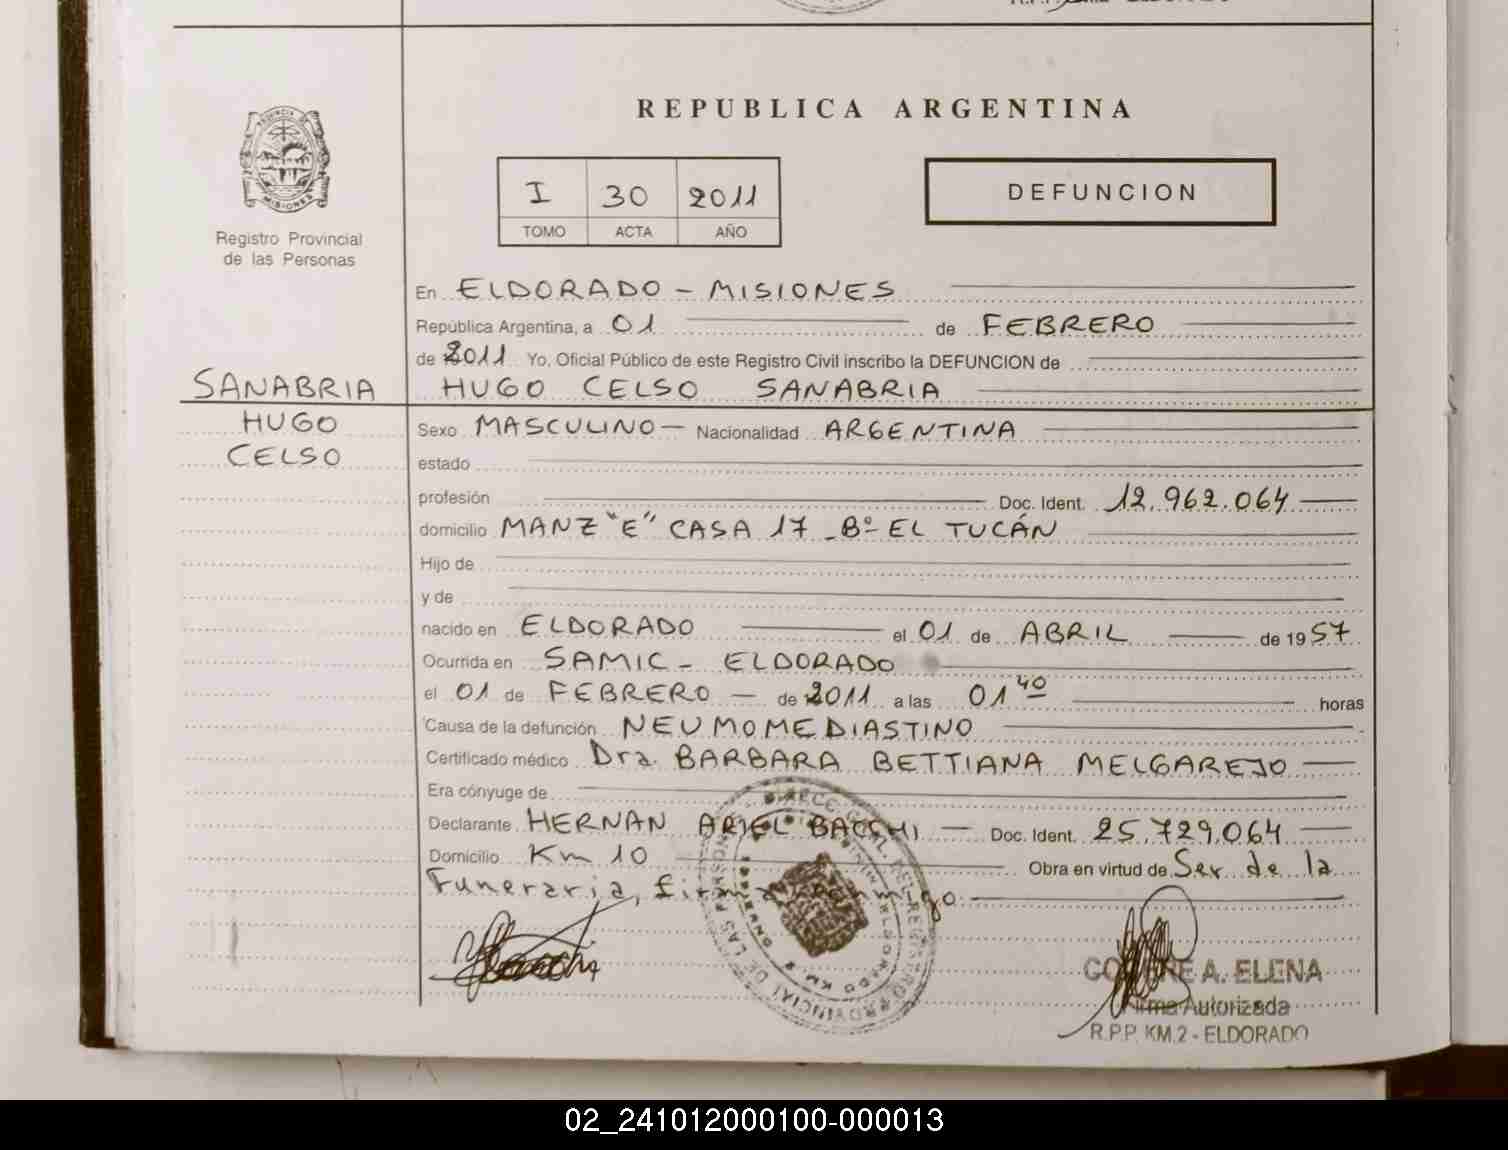 REPUBLICA ARGENTINA
PROVINCIA DE
MISIONES
Registro Provincial
de las Personas
I 30 2011
TOMO ACTA AÑO
DEFUNCION
En ELDORADO - MISIONES
República Argentina, a 01 de FEBRERO
de 2011 Yo, Oficial Público de este Registro Civil inscribo la DEFUNCION de
HUGO CELSO SANABRIA
SANABRIA
HUGO
CELSO
Sexo MASCULINO - Nacionalidad ARGENTINA
estado
profesión Doc. Ident. 12.962.064
domicilio MANZ "E" CASA 17 - Bº EL TUCÁN
Hijo de
y de
nacido en ELDORADO el 01 de ABRIL de 1957
Ocurrida en SAMIC - ELDORADO
el 01 de FEBRERO - de 2011 a las 01 40 horas
Causa de la defunción NEUMOMEDIASTINO
Certificado médico Dra. BARBARA BETTIANA MELGAREJO
Era cónyuge de
Declarante HERNAN ARIEL BACCHI - Doc. Ident. 25.729.064
Domicilio Km 10 Obra en virtud de Ser de la
Funeraria, firma
A. ELENA
Firma Autorizada
R.P.P. KM.2 - ELDORADO
02_241012000100-000013